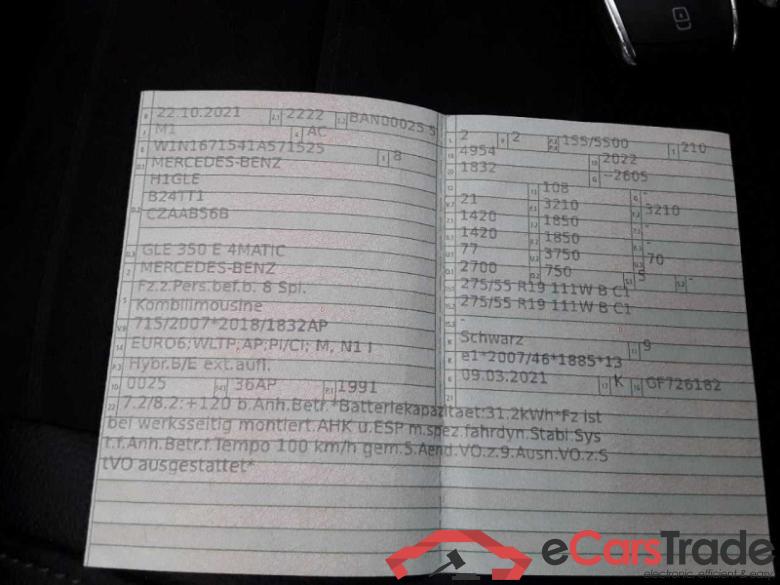 22.10.2021 2222 BAN00025 5
M1 AC
W1N1671541A571525 8
MERCEDES-BENZ
H1GLE
B24TT1
CZAAB56B
GLE 350 E 4MATIC
MERCEDES-BENZ
Fz.z.Pers.bef.b. 8 Spl.
Kombilimousine
715/2007*2018/1832AP
EURO6;WLTP;AP;PI/CI; M, N1 I
Hybr.B/E ext.aufl.
0025 36AP 1991
7.2/8.2:+120 b.Anh.Betr.*Batteriekapazitaet:31.2kWh*Fz ist
bei werksseitig montiert.AHK u.ESP m.spez.fahrdyn.Stabi.Sys
t.f.Anh.Betr.f.Tempo 100 km/h gem.5.Aend.VO.z.9.Ausn.VO.z.S
tVO ausgestattet*
2 2 155/5500 210
4954 2022
1832 -2605
108 -
21 3210 3210
1420 1850 -
1420 1850 -
77 3750 70
2700 750 5 -
275/55 R19 111W B C1
275/55 R19 111W B C1
-
Schwarz 9
e1*2007/46*1885*13
09.03.2021 K GF726182
eCarsTrade
electronic, efficient & easy